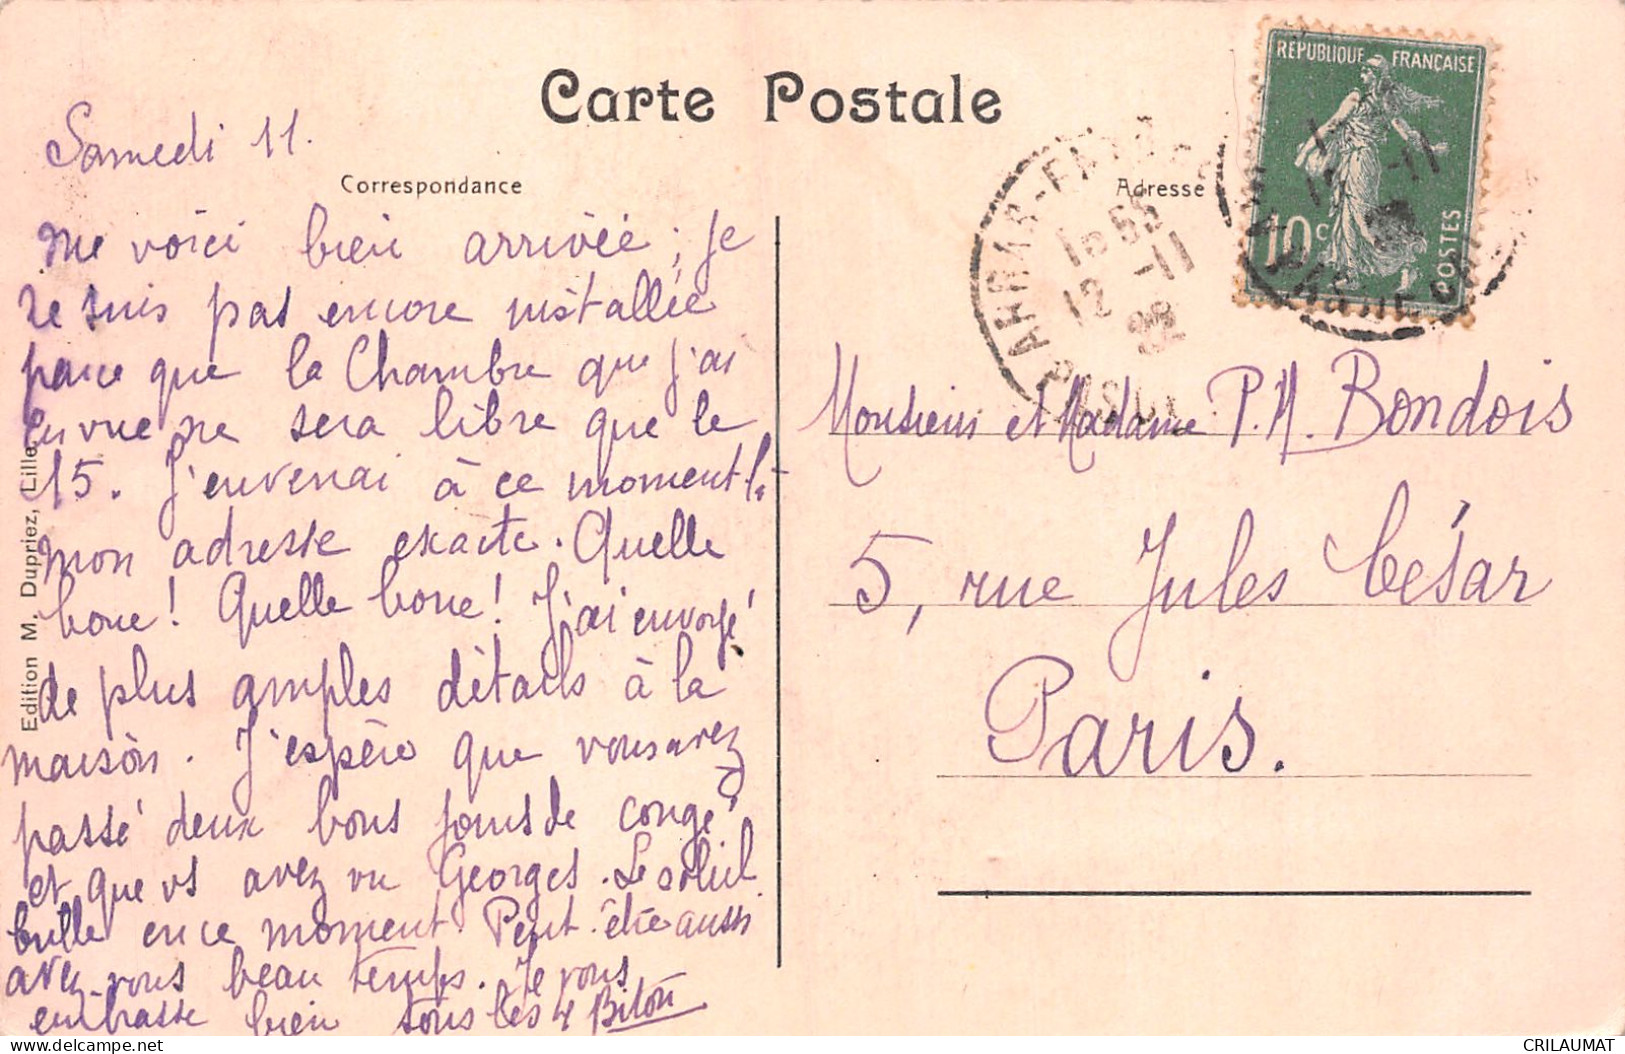 Carte Postale
Correspondance
Adresse
REPUBLIQUE FRANÇAISE
10c
POSTES
18 55
12 -11
22
Samedi 11.
Me voici bien arrivée ; Je
ne suis pas encore installée
parce que la Chambre que j'ai
en vue ne sera libre que le
15. J'enverrai à ce moment là
mon adresse exacte. Quelle
boue ! Quelle boue ! J'ai envoyé
de plus amples détails à la
maison. J'espère que vous avez
passé deux bons jours de congé
et que vs avez vu Georges. Le soleil
brille en ce moment. Peut-être aussi
avez-vous beau temps. Je vous
embrasse bien tous les 4 Biton
Monsieur et Madame P. M. Bondois
5, rue Jules César
Paris.
Edition M. Dupriez, Lille
CRILAUMAT
delcampe.net